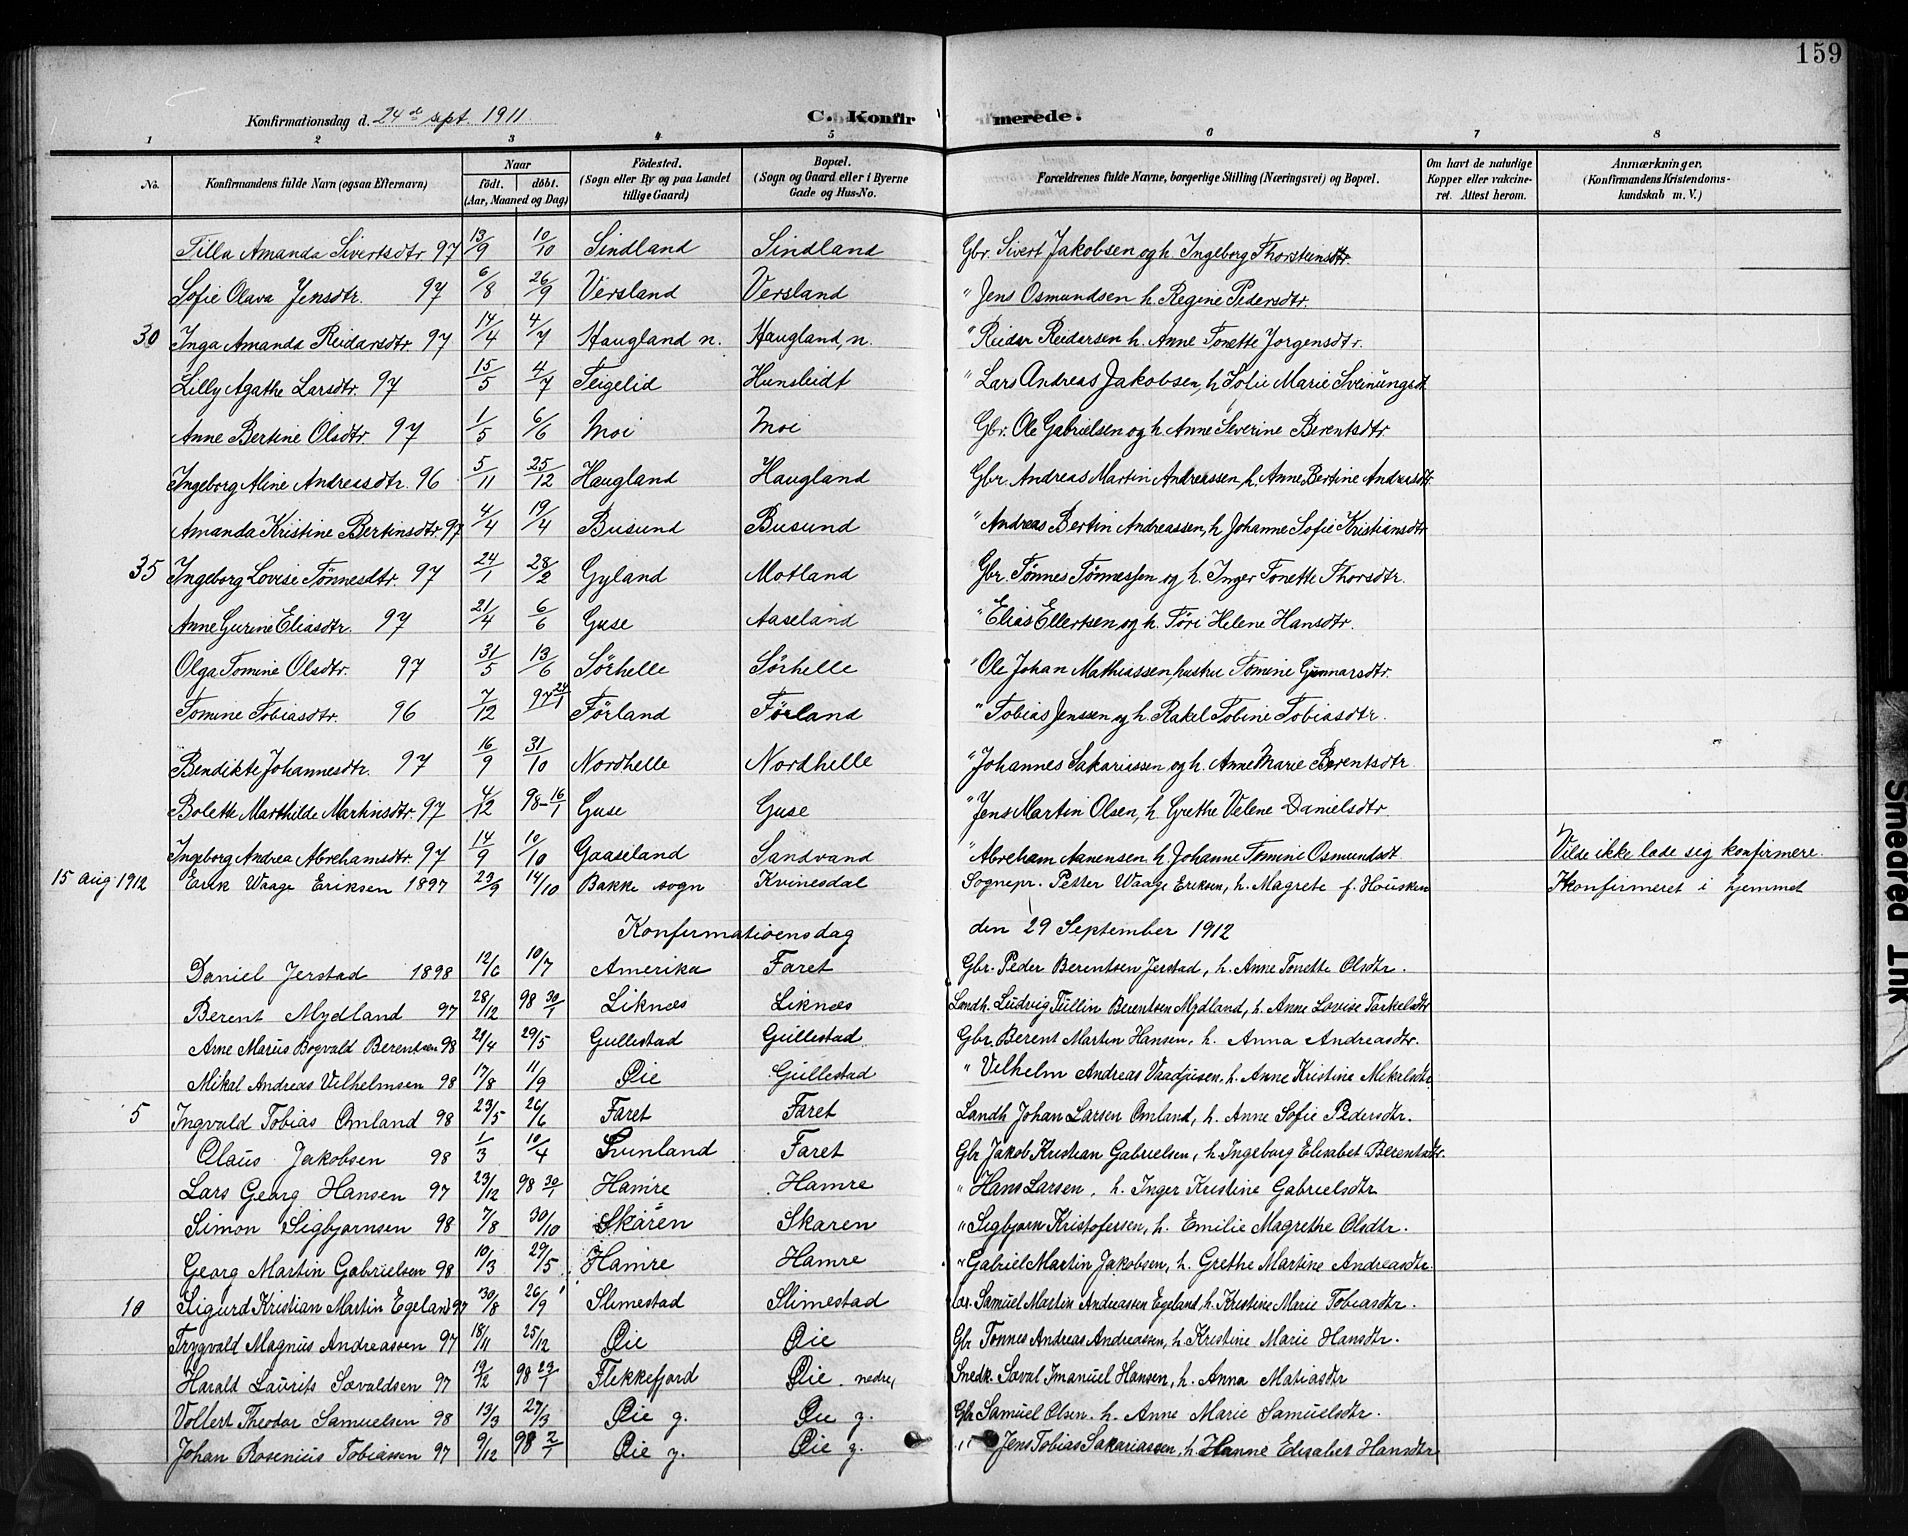 159
Konfirmationsdag d. 24de sept. 1911 C. Konfirmerede.
1 2 3 4 5 6 7 8
No. Konfirmandens fulde Navn (ogsaa Efternavn) Naar født. døbt. (Aar, Maaned og Dag) Fødested. (Sogn eller By og paa Landet tillige Gaard) Bopæl. (Sogn og Gaard eller i Byerne Gade og Hus-No. Forældrenes fulde Navne, borgerlige Stilling (Næringsvei) og Bopæl. Om havt de naturlige Kopper eller vakcineret. Attest herom. Anmærkninger. (Konfirmandens Kristendomskundskab m. V.)
Tilla Amanda Sivertsdtr 97 13/9 10/10 Sindland Sindland Gbr. Sivert Jakobsen og h. Ingeborg Thorsteinsdtr.
Sofie Olava Jensdtr. 97 6/8 26/9 Versland Versland " Jens Osmundsen h. Regine Pedersdtr.
30 Inga Amanda Reidarsdtr. 97 14/4 4/7 Haugland n. Haugland, n. " Reider Reidersen h. Anne Tonette Jorgensdtr.
Lilly Agathe Larsdtr. 97 15/5 4/7 Feigelid Hunsleidt " Lars Andreas Jakobsen, h Sofie Marie Sveinungsdt
Anne Bertine Olsdtr. 97 1/5 6/6 Moi Moi Gbr. Ole Gabrielsen og h. Anne Severine Berentsdtr.
Ingeborg Aline Andreasdtr. 96 5/11 25/12 Haugland Haugland Gbr. Andreas Martin Andreassen, h. Anne Bertine Andreasdtr
Amanda Kristine Bertinsdtr. 97 4/4 19/4 Busund Busund " Andreas Bertin Andreassen, h Johanne Sofie Kristiansdtr
35 Ingeborg Lovise Tönnesdtr. 97 24/1 28/2 Gyland Motland Gbr. Tönnes Tönnessen og h. Inger Tonette Thorsdtr.
Anne Gurine Eliasdtr. 97 21/4 6/6 Guse Aaseland " Elias Ellertsen og h. Töri Helene Hansdtr.
Olga Tomine Olsdtr. 97 31/5 13/6 Sörhelle Sörhelle " Ole Johan Mathiassen, hustru Tomine Gunnarsdtr.
Tomine Tobiasdtr. 96 7/12 97 24/1 Förland Förland " Tobias Jenssen og h. Rakel Tobine Tobiasdtr.
Bendikte Johannesdtr. 97 16/9 31/10 Nordhelle Nordhelle " Johannes Sakariassen og h. Anne Marie Berentsdtr
Bolette Marthilde Martinsdtr. 97 4/12 98-16/1 Guse Guse " Jens Martin Olsen, h. Grethe Velene Danielsdtr.
Ingeborg Andrea Abrehamsdtr. 97 14/9 10/10 Gaaseland Sandvand " Abreham Aanensen h. Johanne Tomine Osmundsdt Vilde ikke lade sig konfirmere.
15 aug. 1912 Erik Waage Eriksen 1897 23/9 14/10 Bakke sogn Kvinesdal Sognepr. Petter Waage Eriksen, h. Magrete f. Housken Konfirmeret i hjemmet
Konfirmationsdag den 29 September 1912
Daniel Jerstad 1898 12/6 10/7 Amerika Faret Gbr. Peder Berentsen Jerstad, h. Anne Tonette Olsdtr.
Berent Mydland 97 28/12 98 30/1 Liknæs Liknæs Landh. Ludvig Tullin Berentsen Mydland, h. Anne Lovise Torkelsdtr
Arne Marius Bogvald Berentsen 98 21/4 29/5 Gullestad Gullestad Gbr. Berent Martin Hansen, h. Anna Andreasdtr.
Mikal Andreas Vilhelmsen 98 17/8 11/9 Øie Gullestad " Vilhelm Andreas Vaadjusen, h. Anne Kristine Mikalsdtr
5 Ingvald Tobias Omland 98 23/5 26/6 Faret Faret Landh Johan Larsen Omland, h. Anne Sofie Pedersdtr.
Olaus Jakobsen 98 1/3 10/4 Svinland Faret Gbr Jakob Kristian Gabrielsen, h. Ingeborg Elisabet Berentsdtr.
Lars Georg Hansen 97 23/12 98 30/1 Hamre Hamre " Hans Larsen, h. Inger Kristine Gabrielsdtr
Simon Sigbjørnsen 98 7/8 30/10 Skaren Skaren " Sigbjørn Kristofersen, h. Emilie Magrethe Olsdtr.
Georg Martin Gabrielsen 98 10/3 29/5 Hamre Hamre " Gabriel Martin Jakobsen, h. Grethe Martine Andreasdtr.
10 Sigurd Kristian Martin Egeland 97 30/8 26/9 Slimestad Slimestad Samuel Martin Andreassen Egeland, h. Kristine Marie Tobiasdtr.
Trygvald Magnus Andreassen 97 18/11 25/12 Øie Øie Gbr Tonnes Andreas Andreassen, h Kristine Marie Hansdtr.
Harald Laurits Sævaldsen 97 19/12 98 29/1 Flekkefjord Øie nedre, Snedk. Sæval Imanuel Hansen, h. Anna Matiasdtr
Vollert Theodor Samuelsen 98 13/3 27/3 Øie g. Øie g. Gbr Samuel Olsen. h. Anne Marie Samuelsdtr.
Johan Rosenius Tobiassen 97 9/12 98 2/1 Øie g. Øie g. " Jens Tobias Sakariassen, h. Hanne Elisabet Hansdtr
Smeared Ink